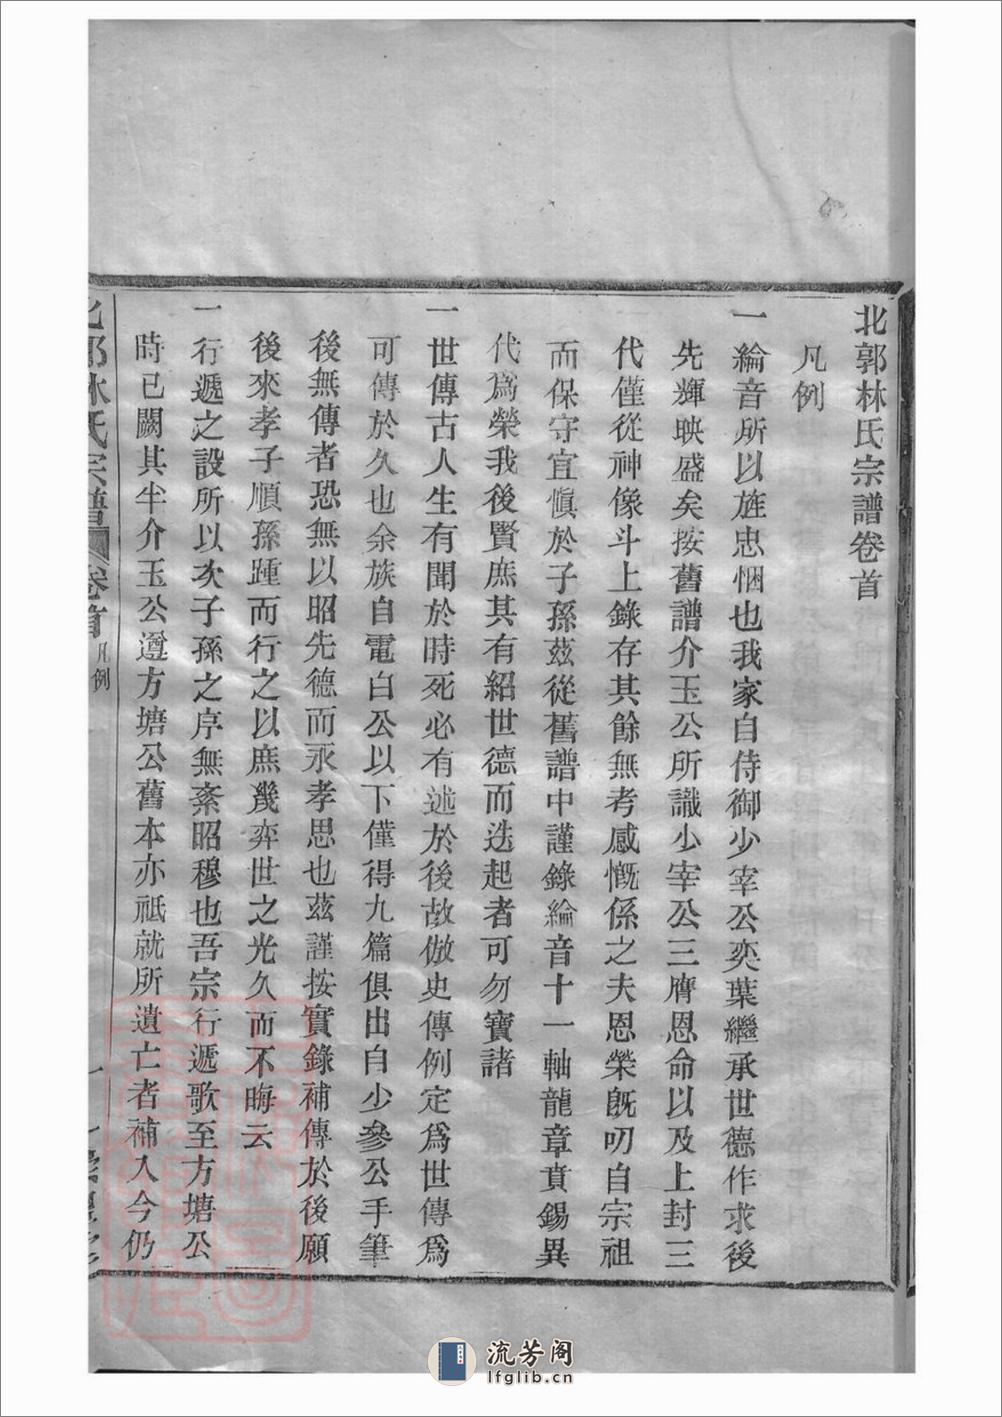 北郭林氏宗譜卷首
凡例
一綸音所以旌忠悃也我家自侍御少宰公奕葉繼承世德作求後
先輝映盛矣按舊譜介玉公所識少宰公三膺恩命以及上封三
代僅從神像斗上錄存其餘無考感慨係之夫恩榮旣叨自宗祖
而保守宜愼於子孫茲從舊譜中謹錄綸音十一軸龍章賁錫異
代爲榮我後賢庶其有紹世德而迭起者可勿寶諸
一世傳古人生有聞於時死必有述於後故倣史傳例定爲世傳爲
可傳於久也余族自電白公以下僅得九篇俱出自少參公手筆
後無傳者恐無以昭先德而永孝思也茲謹按實錄補傳於後願
後來孝子順孫踵而行之以庶幾弈世之光久而不晦云
一行遞之設所以次子孫之序無紊昭穆也吾宗行遞歌至方塘公
時已闕其半介玉公遵方塘公舊本亦祗就所遺亡者補入今仍
北郭林氏宗譜 卷首 凡例 一
流芳阁
lfglib.cn